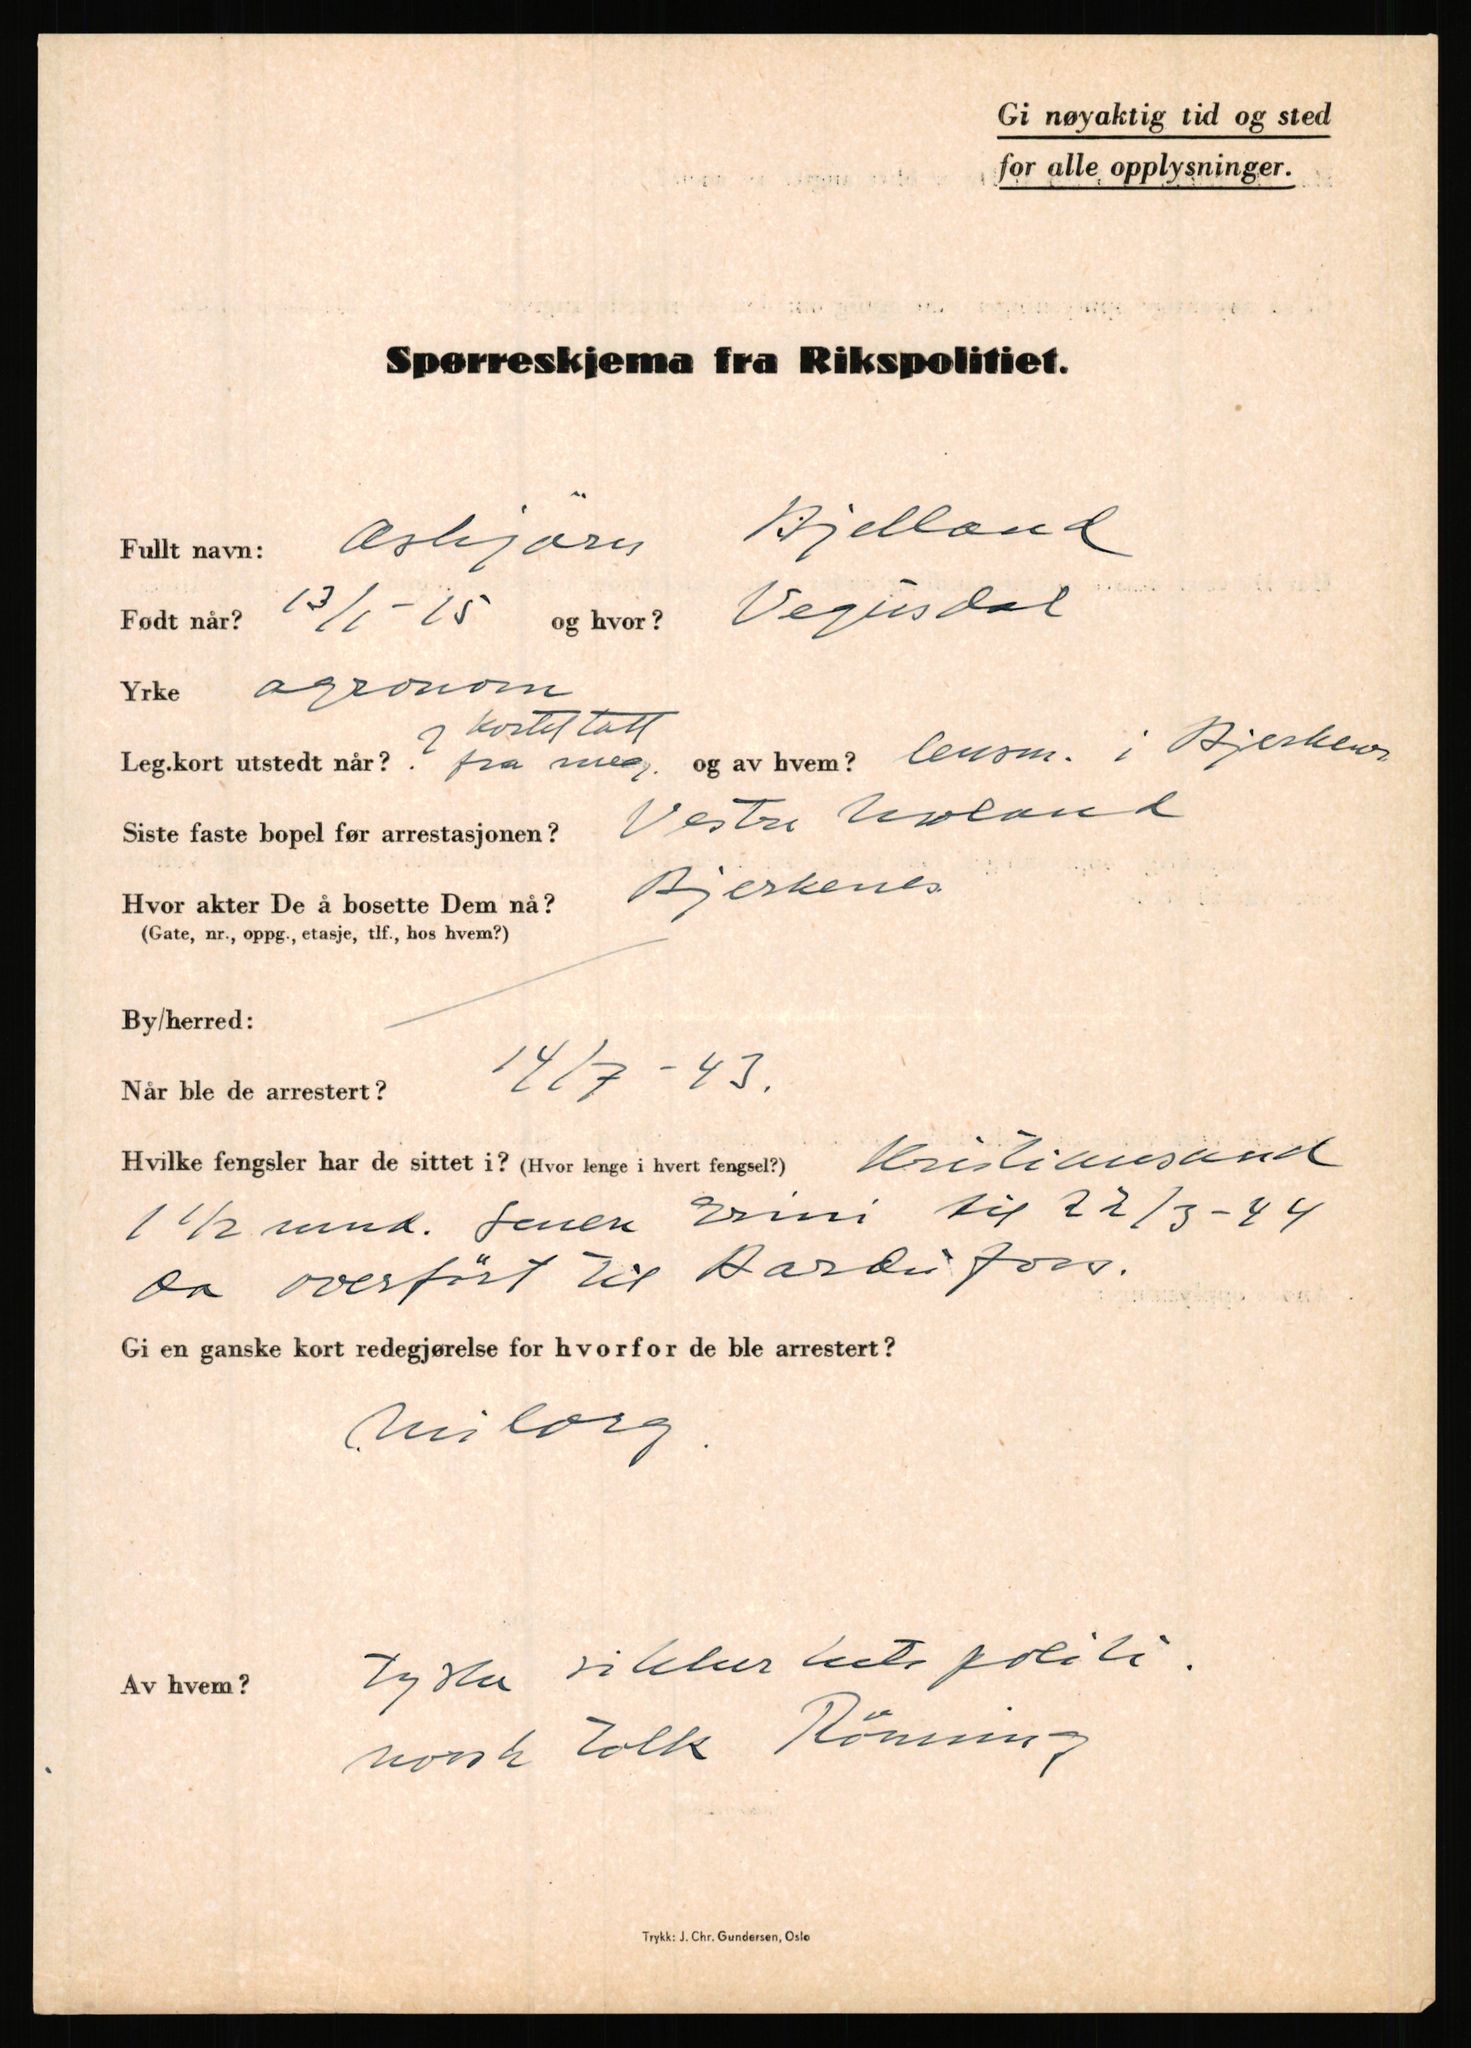 Gi nøyaktig tid og sted
for alle opplysninger.
Spørreskjema fra Rikspolitiet.
Fullt navn: Asbjörn Bjelland
Født når? 13/1-15 og hvor? Vegusdal
Yrke agronom
Leg.kort utstedt når? ? kortet tatt fra meg. og av hvem? lensm. i Bjerkenes
Siste faste bopel før arrestasjonen? Vestre Moland
Hvor akter De å bosette Dem nå? Bjerkenes
(Gate, nr., oppg., etasje, tlf., hos hvem?)
By/herred:
Når ble de arrestert? 14/7-43.
Hvilke fengsler har de sittet i? (Hvor lenge i hvert fengsel?) Kristiansand
1 1/2 mnd. senere Grini til 22/3-44
da overfört til Bardufoss.
Gi en ganske kort redegjørelse for hvorfor de ble arrestert?
Milorg.
Av hvem? tyske sikkerhetspoliti.
norsk tolk Rönning
Trykk: J. Chr. Gundersen, Oslo